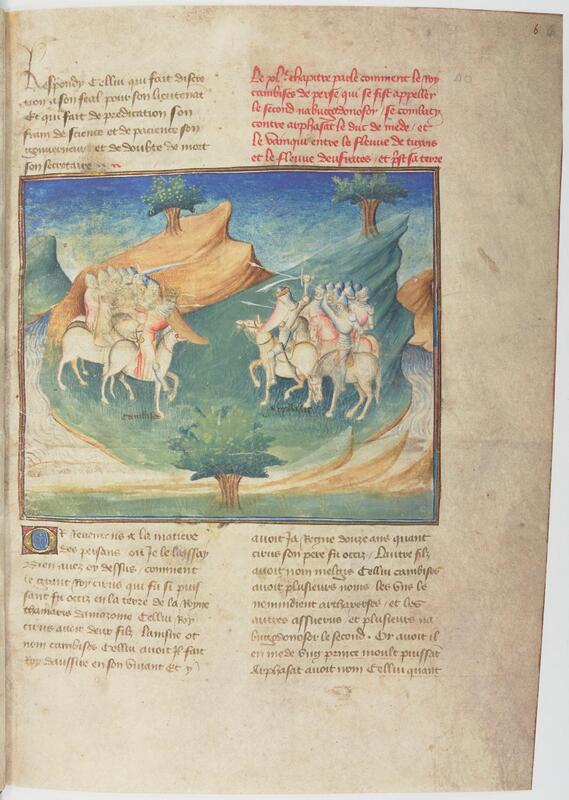 6
Respondy Cellui qui fait discre
tion a son seal pour son lieutenãt
Et qui fait de predication son
frain de science et de pacience son
gouverneur et de doubte de mort
son secretaire
Le xl.e chapitre parle comment le roy
cambises de perse qui se fist appeller
le second nabugdonosor se combaty
contre arphasat le duc de mede / et
le vainqui entre le fleuve de tigris
et le fleuve deufrates / et prist sa terre
cambises
arphasat
Or Revenrons a la matiere
des persans ou Je le laissay
Bien avez oy dessus / comment
le grant Roy cirus qui fu si puis
sant fu occiz en la terre de la Royne
thamaris damazonie Cellui Roy
cirus avoit deux filz / lainsne ot
nom cambises Cellui avoit il fait
Roy daussire en son vivant Et y
avoit Ja Regne douze ans quant
cirus son pere fu occiz / Lautre filz
avoit nom melgis Cellui cambises
avoit plusieurs noms les vns le
nommoient arthaxerses / et les
autres assuerus et plusieurs na
bugdonosor le second . Or avoit il
en mede vng prince moult puissãt
Arphasat avoit nom Cellui quant